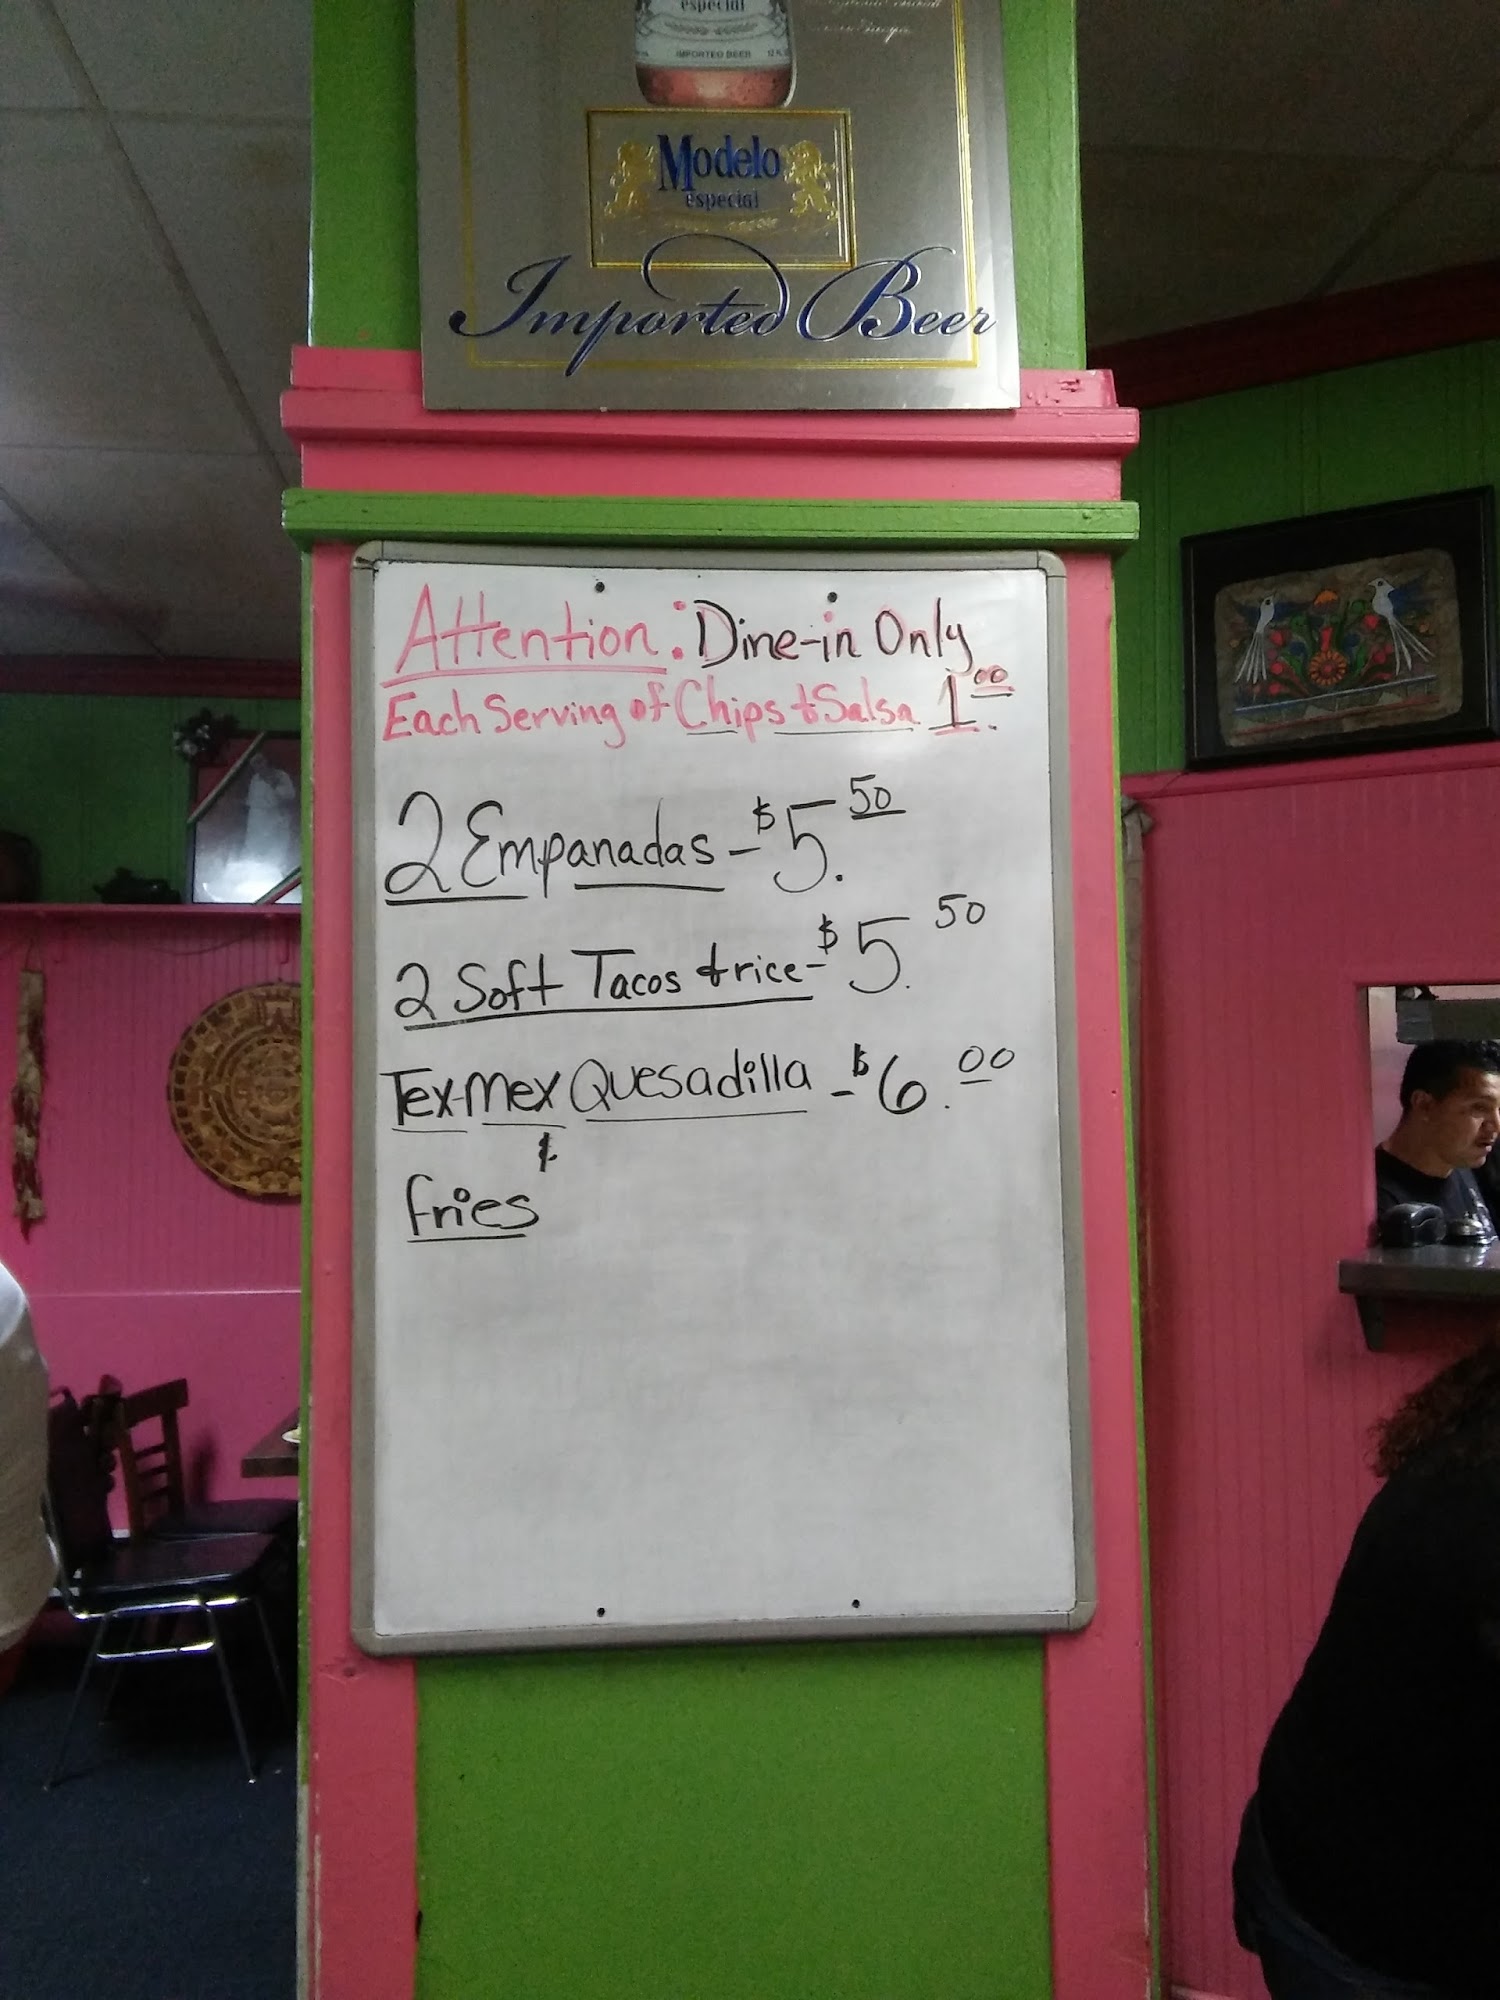 especial
IMPORTED BEER
Modelo
Especial
Imported Beer
Attention: Dine-in Only
Each Serving of Chips & Salsa 1.00
2 Empanadas - $5.50
2 Soft Tacos & rice - $5.50
Tex-Mex Quesadilla - $6.00
&
fries